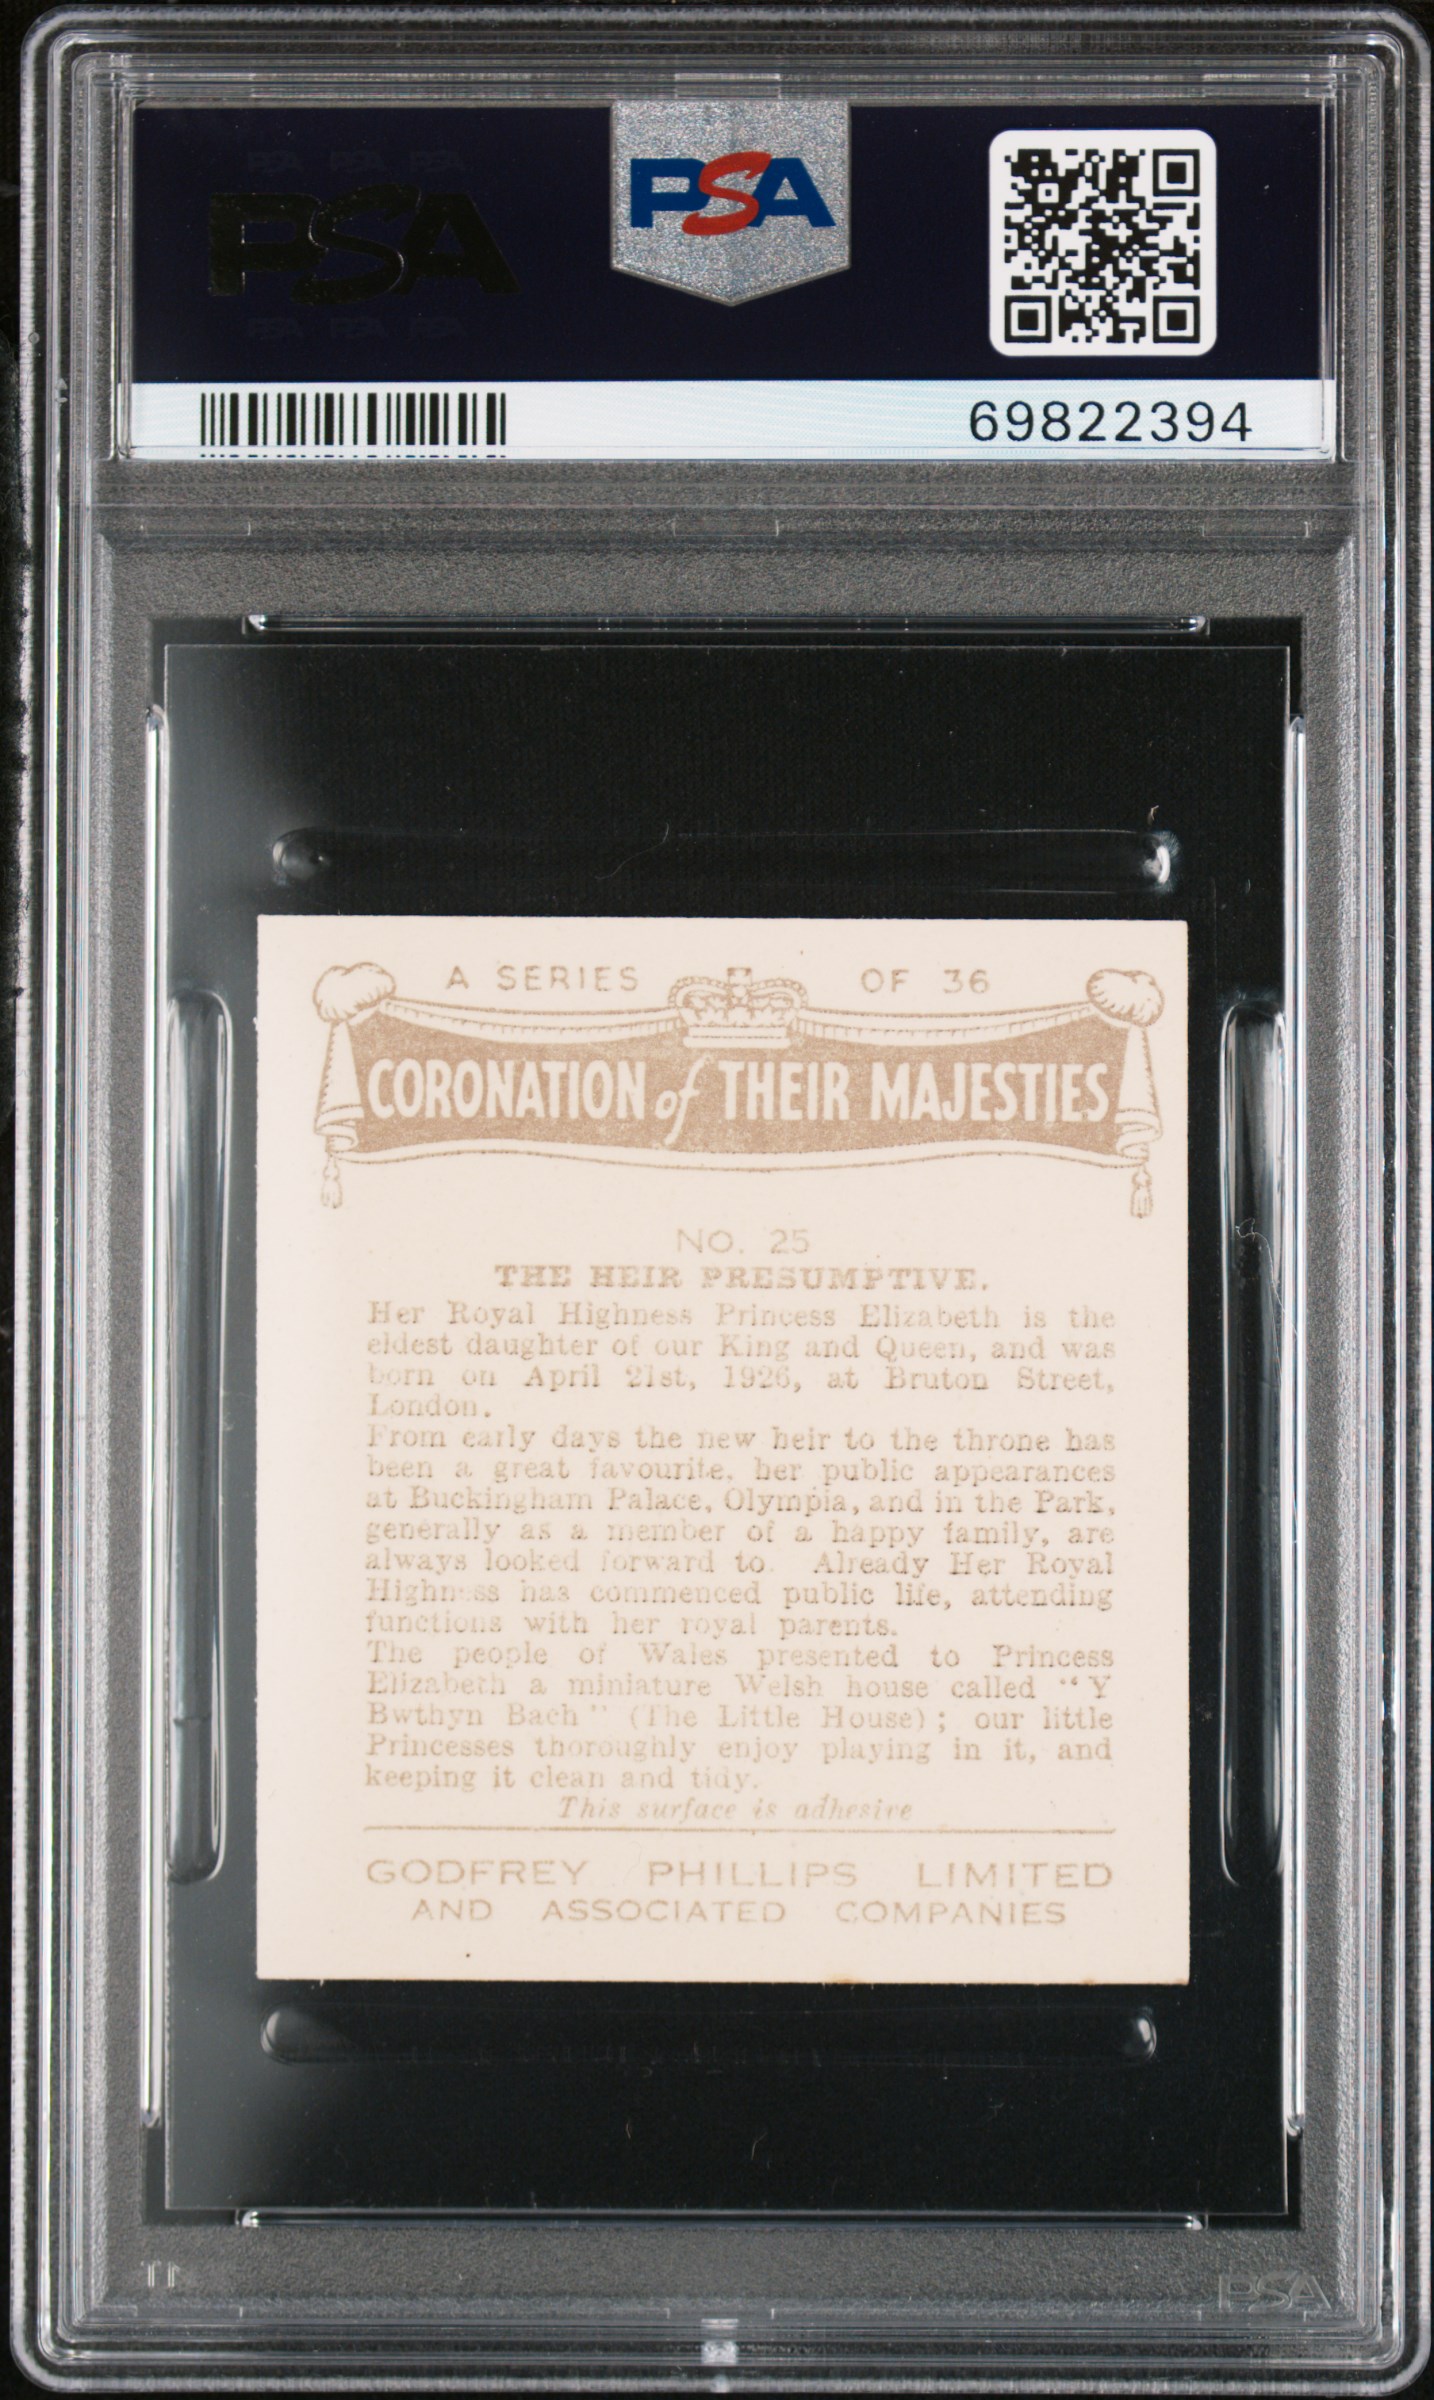 PSA PSA PSA
PSA
PSA PSA PSA
PSA
69822394
A SERIES OF 36
CORONATION of THEIR MAJESTIES
NO. 25
THE HEIR PRESUMPTIVE.
Her Royal Highness Princess Elizabeth is the
eldest daughter of our King and Queen, and was
born on April 21st, 1926, at Bruton Street,
London.
From early days the new heir to the throne has
been a great favourite, her public appearances
at Buckingham Palace, Olympia, and in the Park,
generally as a member of a happy family, are
always looked forward to. Already Her Royal
Highness has commenced public life, attending
functions with her royal parents.
The people of Wales presented to Princess
Elizabeth a miniature Welsh house called "Y
Bwthyn Bach" (The Little House); our little
Princesses thoroughly enjoy playing in it, and
keeping it clean and tidy.
This surface is adhesive
GODFREY PHILLIPS LIMITED
AND ASSOCIATED COMPANIES
PSA